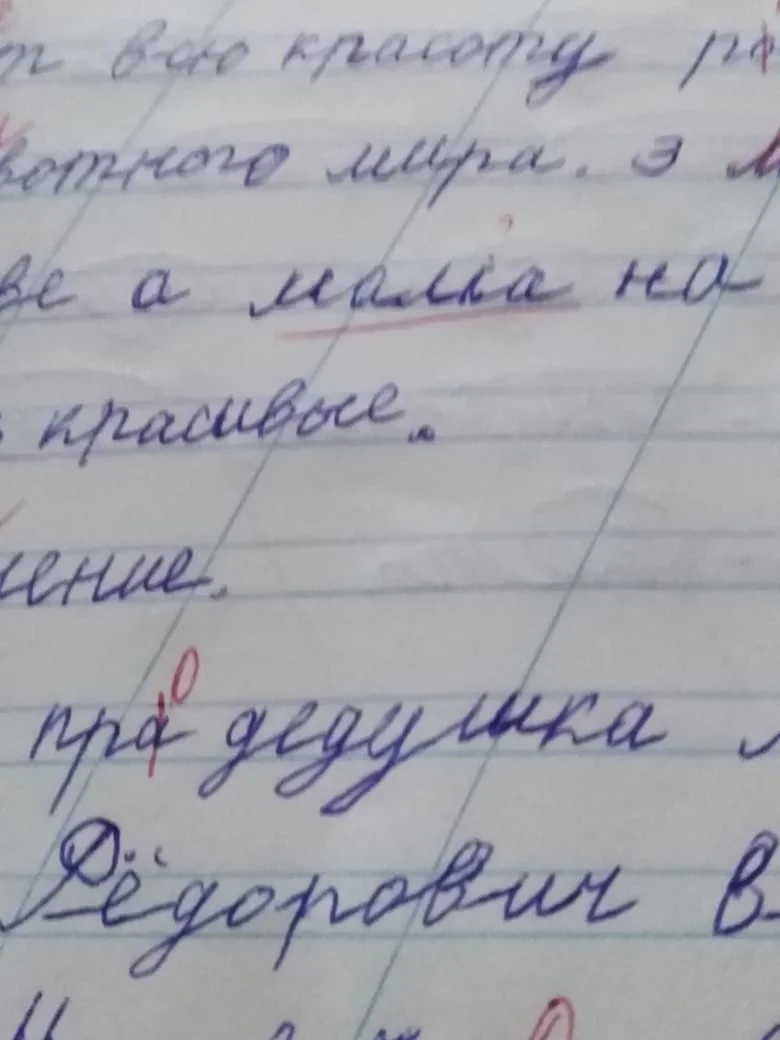 всю красоту
вотного мира. э
ве а малка на
красивые.
ение.
пра дедушка
Фёдорович В